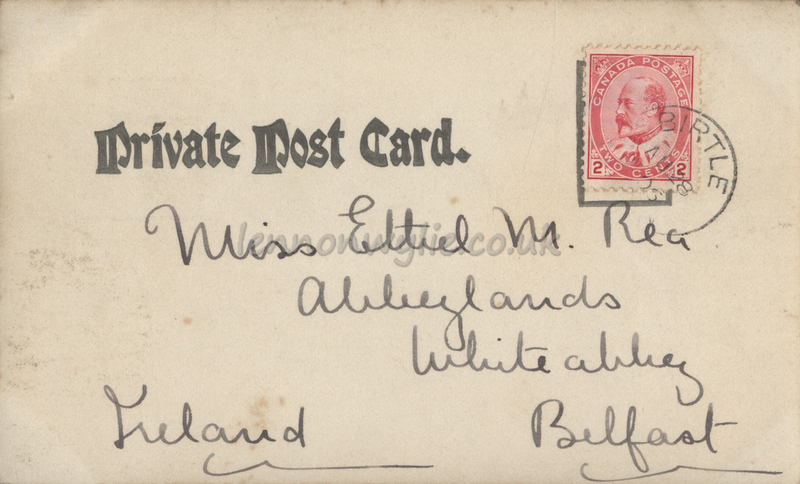 CANADA POSTAGE
2 TWO CENTS 2
BIRTLE
Private Post Card.
Miss Ethel M. Rea
lennonwylie.co.uk
Abbeylands
Whiteabbey
Ireland Belfast